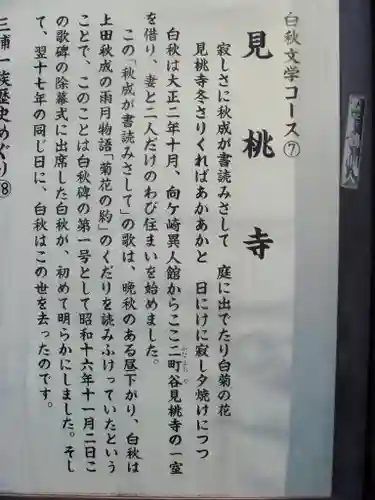 白秋文学コース⑦
見桃寺
寂しさに秋成が書読みさして　庭に出でたり白菊の花
見桃寺冬さりくればあかあかと　日にけに寂し夕焼けにつつ
白秋は大正二年十月、向ケ崎異人館からここ二町谷見桃寺の一室
を借り、妻と二人だけのわび住まいを始めました。
この「秋成が書読みさして」の歌は、晩秋のある昼下がり、白秋は
上田秋成の雨月物語「菊花の約」のくだりを読みふけっていたという
ことで、このことは白秋碑の第一号として昭和十六年十一月二日こ
の歌碑の除幕式に出席した白秋が、初めて明らかにしました。そし
て、翌十七年の同じ日に、白秋はこの世を去ったのです。
三浦一族歴史めぐり⑧